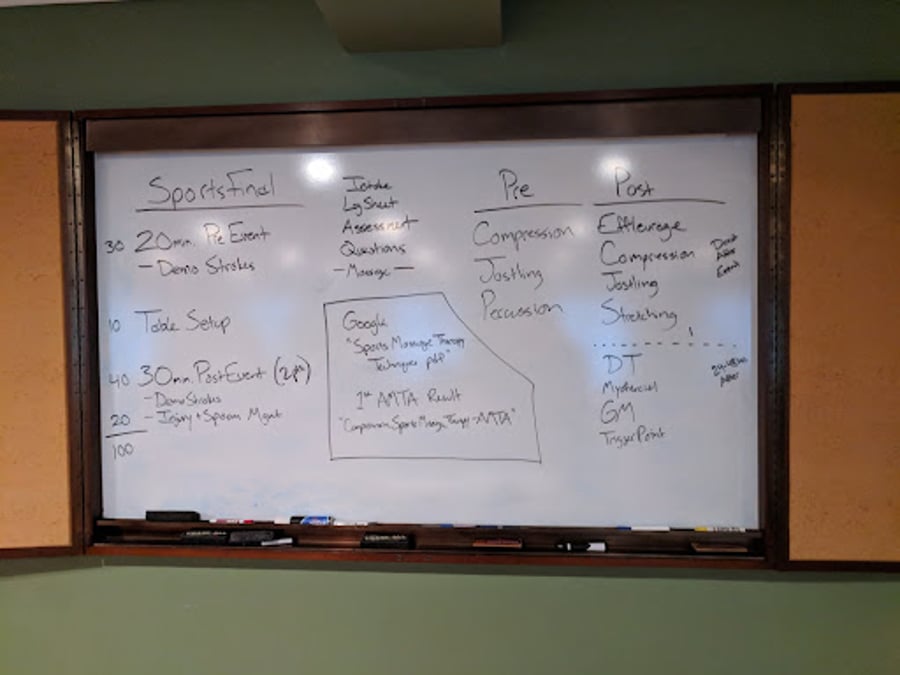 Sports Final
30 20min. Pre Event
- Demo Strokes
10 Table Setup
40 30min. Post Event
- Demo Strokes
20 - Injury + Spasm Mgmt
100
Intake
Log Sheet
Assessment
Questions
- Massage -
Google
"Sports Massage Therapy
Techniques pdf"
1st AMTA Result
Sports Massage Therapy - AMTA"
Pre
Compression
Jostling
Percussion
Post
Effleurage
Compression
Jostling
Stretching
After
Event
DT
Myofascial
GM
Trigger Point
After